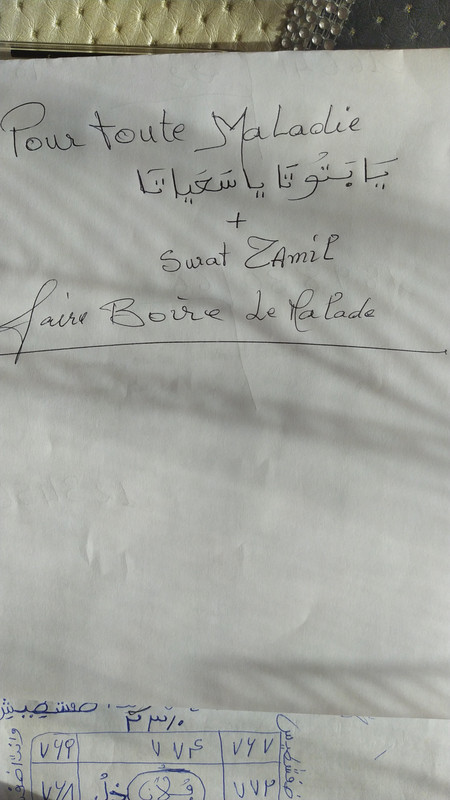 Pour toute Maladie
يَا بَتُوتَا يا سَعَياتَا
+
Surat ZAmiL
faire Boire Le Malade
٢٣١٠
٧٦٩ ٧٧٤ ٧٦٧
٧٦٨ ٧٧٢